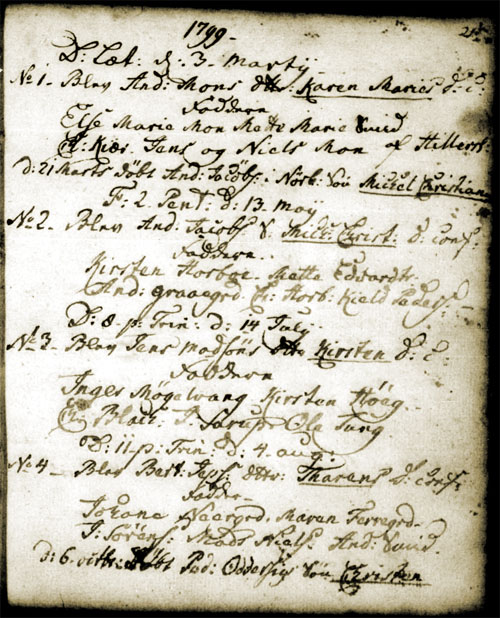 1799.
D: Læt: d: 3. Martij
No 1. Blev And: Mons dttr: Karen Maries d: C:
Faddern
Else Marie Mon Mette Marie
Chr: Kiær. Jens og Niels Mon af Hillerst:
d: 21 Marts døbt And: Jacobs: i Nørb: Søn Michel Christian
F: 2. Pent: d: 13. Maij
No 2. Blev And: Jacobs: S. Mich: Christ: d: Conf:
Faddern
Kirsten Horboe. Mette Edvardt:
And: Graaegrd. Chr: Horb: Kield Peders:
D: 8. p: Trin: d: 14 July
No 3. Blev Jens Madsøns dttr Kirsten d: C:
Faddern
Inger Møgelvang Kirsten Høeg
Chr: P: Sarup. Ole Tung
D: 11. p: Trin: d: 4. aug:
No 4. Blev Bert: Jeps: dttr: Tharens d: Conf:
Fadder
Johane Naaergrd. Maren Terregrd.
J: Sørens: Mads Niels: And:
d: 6. døbt Ped: Søn Christen